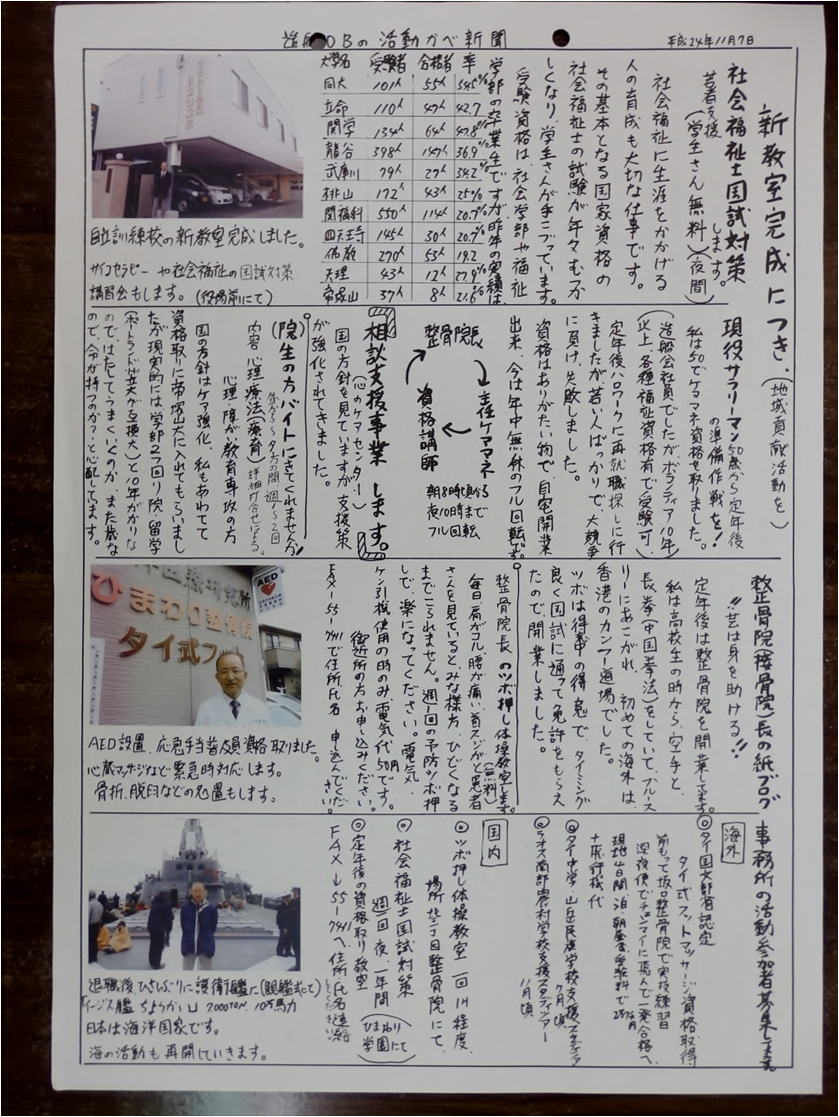 造船OBの活動かべ新聞
平成24年11月7日
新教室完成につき、(地域貢献活動を)
します。
社会福祉士国試対策
若者支援(学生さん無料)(夜間)
社会福祉に生涯をかかげる
人の育成も大切な仕事です。
その基本となる国家資格の
社会福祉士の試験が年々むづか
しくなり、学生さんが手こづっています。
受験資格は、社会学部や福祉
学部の卒業生ですが昨年の実績は
大学名 受験者 合格者 率
同大 101人 55人 54.5%
立命 110人 47人 42.7
関学 134人 64人 47.8%
龍谷 398人 147人 36.9%
武庫川 79人 27人 34.2%
桃山 172人 43人 25%
関福科 550人 114人 20.7%
四天王寺 145人 30人 20.7%
佛教 270人 53人 19.2
天理 43人 12人 27.9%
帝塚山 37人 8人 21.6%
自立訓練校の新教室完成しました。
サイコセラピーや社会福祉の国試対策
講習会もします。(役場前にて)
現役サラリーマン50歳から定年後
の準備作戦を!
私は50でケアマネ資格を取りました。
(造船会社員でしたがボランティア10年
以上、各種福祉資格有で受験可)
定年後ハローワークに再就職探しに行
きましたが、若い人ばっかりで、大競争
に負け、失敗しました。
資格はありがたい物で、自宅開業
出来、今は年中無休のフル回転です。
整骨院長
主任ケアマネ
資格講師
朝8時頃から
夜10時まで
フル回転
相談支援事業します。
(心のケアセンター)
国の方針を見ていますが、支援策
が強化されてきました。
(院生の方バイトにきてくれませんか)
昼から〜夕方の間 週1〜2回
内容 心理療法(療育)詳細打合せしましょう。
心理・障がい教育専攻の方
国の方針はケア強化、私もあわてて
資格取りに帝塚山大に入れてもらいまし
たが、現実的には学部2つ回り院・留学
(ポートランド州立大が互換大)と10年がかりな
ので、はたしてうまくいくのか、また歳な
ので、命が持つのか?と心配しています。
整骨院(接骨院)長の紙ブログ
"芸は身を助ける!!
定年後は整骨院を開業してます。
私は高校生の時から、空手と、
長拳(中国拳法)をしていて、ブルース
リーにあこがれ、初めての海外は、
香港のカンフー道場でした。
ツボは得意中の得意で、タイミング
良く国試に通って免許をもらえ
たので、開業しました。
整骨院長のツボ押し体操教室します。
(無料)
毎日、肩がコル、腰が痛い、首スジがと患者
さんを見ていると、みな様方、ひどくなる
までこられません。週1回の予防ツボ押
しで、楽になってください。電気
ケン引機使用の時のみ、電気代50円です。
御近所の方お申し込みください。
FAX-55-7411で住所氏名 申し込んでください。
AED
ひまわり整骨院
タイ式フット
AED設置、応急手当普及員資格取りました。
心臓マッサージなど緊急時対応します。
骨折、脱臼などの処置もします。
事務所の活動参加者募集してます。
海外
◎タイ国文部省認定
タイ式フットマッサージ資格取得
前もって坂口整骨院で実技練習
深夜便でチェンマイに飛んで一発合格へ
現地4日間 泊・朝昼食・受験料で
+飛行機代
◎タイ中学、山岳民族学校支援スタディツアー
7月頃
◎ラオス南部農村学校支援スタディツアー
11月頃
国内
◎ツボ押し体操教室 一回1H程度、
場所 整骨院にて、
◎社会福祉士国試対策
週1回 夜、一年間
◎定年後の資格取り教室
(ひまわり学園にて)
FAX→55-7411へ 住所、氏名連絡
してください。
退職後ひさしぶりに護衛艦に(観艦式にて)
「イージス艦ちょうかい」7000TON、10万馬力
日本は海洋国家です。
海の活動も再開していきます。